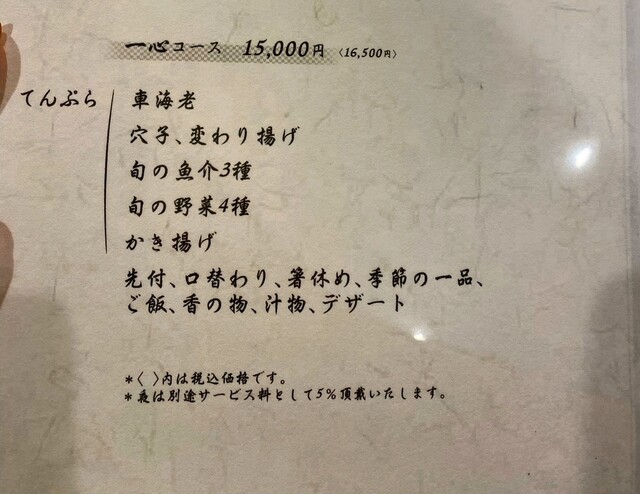 一心コース 15,000円 〈16,500円〉
てんぷら
車海老
穴子、変わり揚げ
旬の魚介3種
旬の野菜4種
かき揚げ
先付、口替わり、箸休め、季節の一品、
ご飯、香の物、汁物、デザート
＊〈 〉内は税込価格です。
＊夜は別途サービス料として5%頂戴いたします。